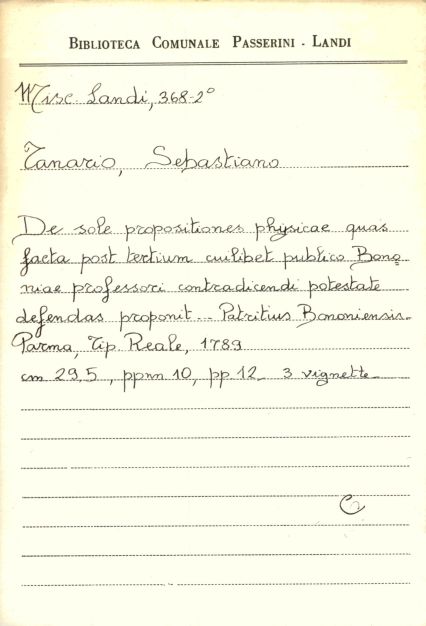 BIBLIOTECA COMUNALE PASSERINI - LANDI
Misc. Landi, 368-2°
Tanario, Sebastiano
De sole propositiones physicae quas
facta post tertium cuilibet publico Bono
niae professori contradicendi potestate
defendas proponit... Patritius Bononiensis.
Parma, Tip. Reale, 1789
cm 29,5, ppnn. 10, pp. 12 3 vignette
C